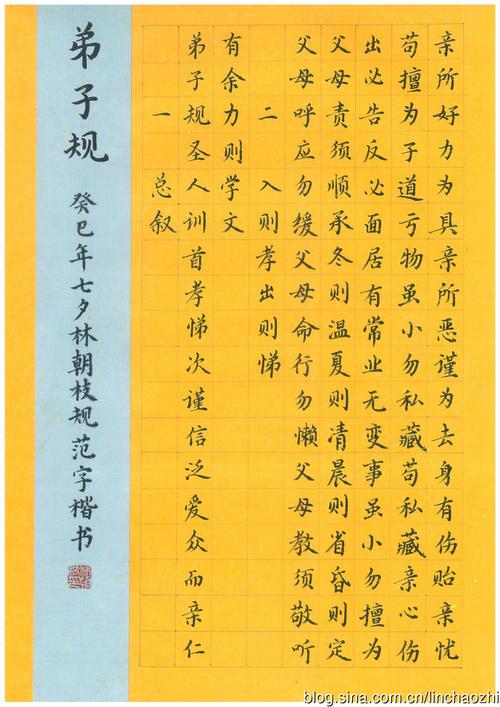 弟子规
癸巳年七夕林朝枝规范字楷书
一 总叙
弟子规圣人训首孝悌次谨信泛爱众而亲仁
有余力则学文
二 入则孝出则悌
父母呼应勿缓父母命行勿懒父母教须敬听
父母责须顺承冬则温夏则凊晨则省昏则定
出必告反必面居有常业无变事虽小勿擅为
苟擅为子道亏物虽小勿私藏苟私藏亲心伤
亲所好力为具亲所恶谨为去身有伤贻亲忧
blog.sina.com.cn/linchaozhi